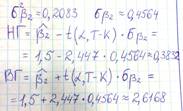 σ²β₂=0,2083 σβ₂=0,4564
НГ=β₂-t(α,T-K)·σβ₂=
=1,5-2,447·0,4564≈0,3832
ВГ=β₂+t(α,T-K)·σβ₂=
=1,5+2,447·0,4564≈2,6168